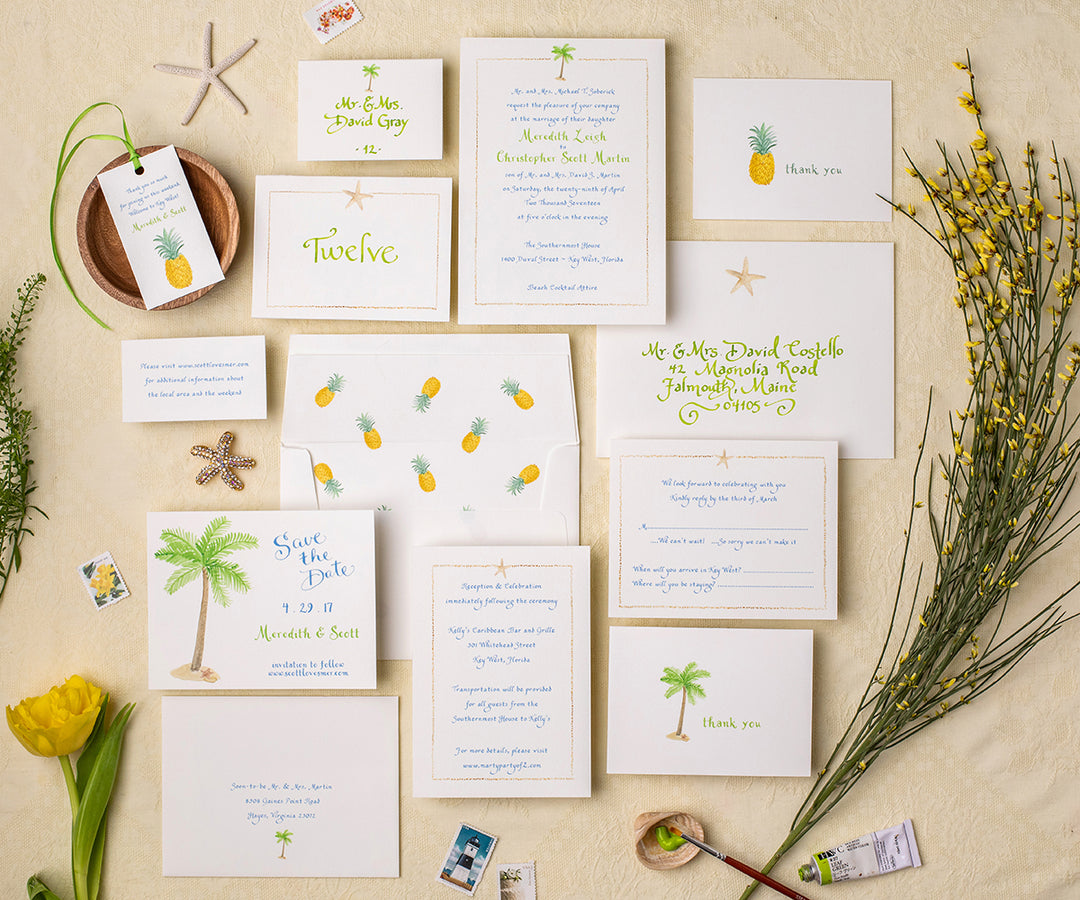 Mr. & Mrs.
David Gray
- 12 -
Mr. and Mrs. Michael T. Soberick
request the pleasure of your company
at the marriage of their daughter
Meredith Leigh
to
Christopher Scott Martin
son of Mr. and Mrs. David J. Martin
on Saturday, the twenty-ninth of April
Two Thousand Seventeen
at five o'clock in the evening
The Southernmost House
1400 Duval Street ~ Key West, Florida
Beach Cocktail Attire
thank you
Thank you so much
for joining us this weekend.
Welcome to Key West!
Meredith & Scott
Twelve
Mr. & Mrs. David Costello
42 Magnolia Road
Falmouth, Maine
04105
Please visit www.scottlovesmer.com
for additional information about
the local area and the weekend
We look forward to celebrating with you
Kindly reply by the third of March
M
We can't wait! So sorry we can't make it
When will you arrive in Key West?
Where will you be staying?
Save
the
Date
4.29.17
Meredith & Scott
invitation to follow
www.scottlovesmer.com
Reception & Celebration
immediately following the ceremony
Kelly's Caribbean Bar and Grille
301 Whitehead Street
Key West, Florida
Transportation will be provided
for all guests from the
Southernmost House to Kelly's
For more details, please visit
www.martypartyof2.com
thank you
Soon-to-be Mr. & Mrs. Martin
8508 Gaines Point Road
Hayes, Virginia 23072
LEAF
GREEN